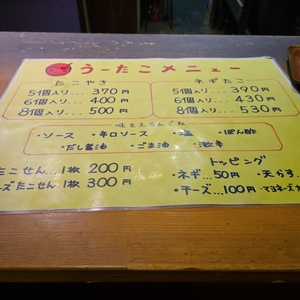 うーたこメニュー
たこやき
5個入り...370円
6個入り...400円
8個入り...500円
ネギたこ
5個入り...390円
6個入り...430円
8個入り...530円
味をえらんでね
・ソース ・辛口ソース ・塩 ・ぽん酢
・だし醤油 ・ごま油 ・激辛
たこせん...1枚 200円
ズたこせん...1枚 300円
トッピング
・ネギ...50円 ・天かす
・チーズ...100円 ・マヨネーズ